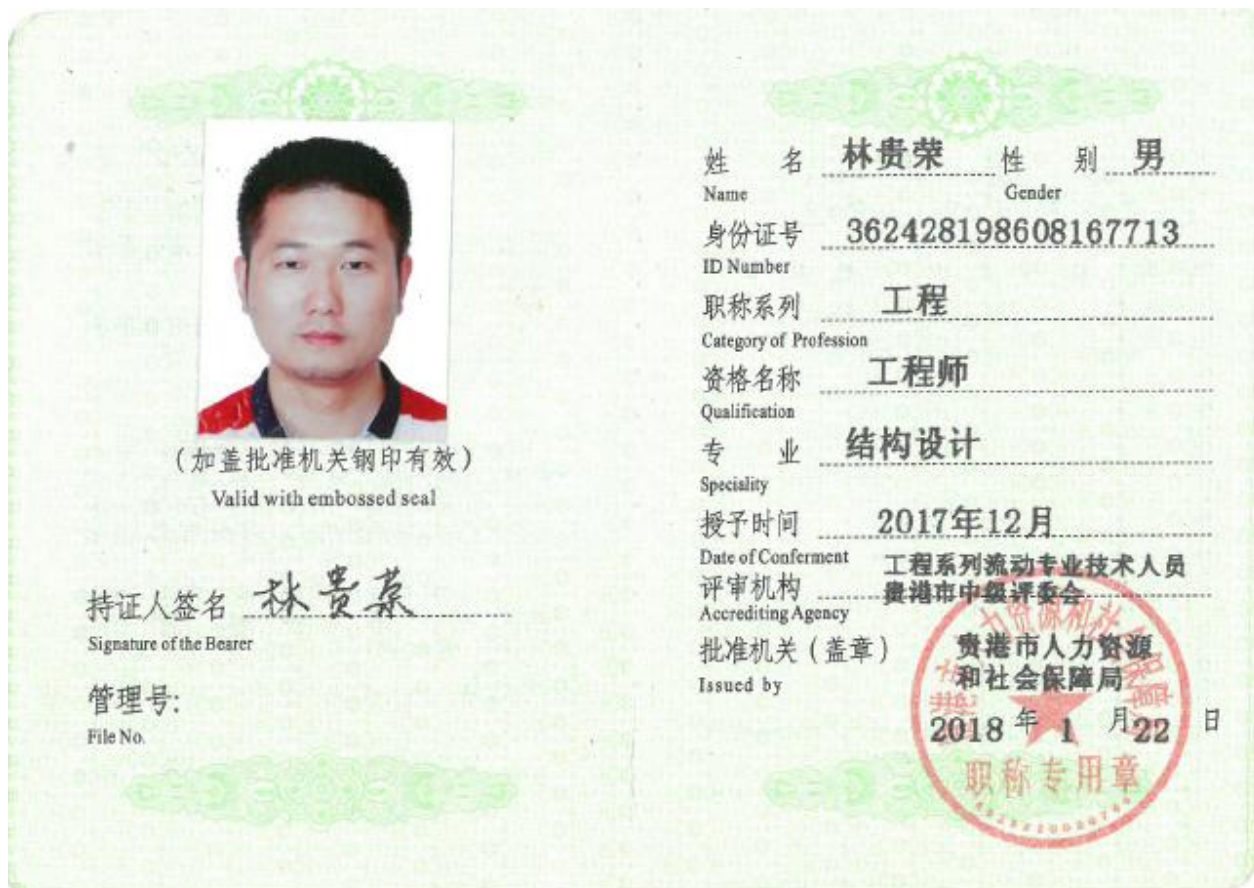 (加盖批准机关钢印有效)
Valid with embossed seal
持证人签名 林贵荣
Signature of the Bearer
管理号:
File No.
姓 名 林贵荣 性 别 男
Name Gender
身份证号 362428198608167713
ID Number
职称系列 工程
Category of Profession
资格名称 工程师
Qualification
专 业 结构设计
Speciality
授予时间 2017年12月
Date of Conferment
工程系列流动专业技术人员
评审机构 贵港市中级评委会
Accrediting Agency
批准机关(盖章) 贵港市人力资源
和社会保障局
Issued by
2018 年 1 月 22 日
职称专用章